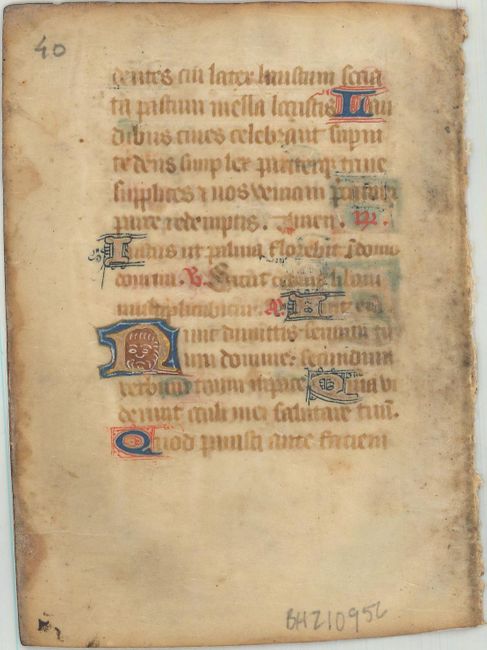 40
dentes cui later haustum socia
ta pastum mella locustis Lau
dibus ciues celebrant superni
te deus simplex pariterque trine
supplices nos veniam
parce redemptis. Amen.
Iustus ut palma florebit
domini. Sicut
multiplicabitur.
Nunc dimittis seruum tu
um domine: secundum
verbum tuum in pace Quia vi
derunt oculi mei salutare tuum.
Quod parasti ante faciem
BHZ10956